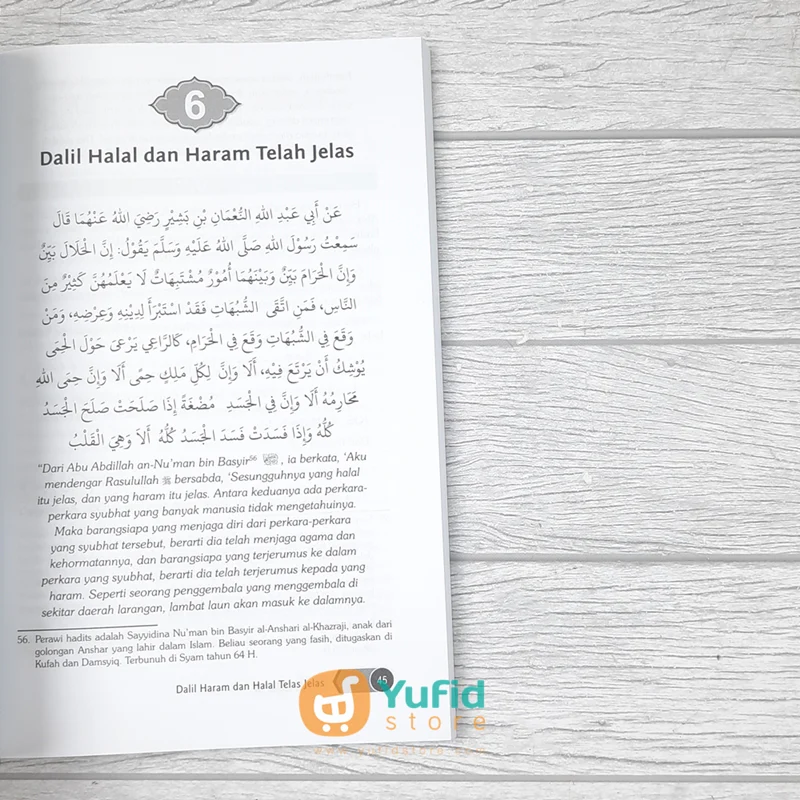 6
Dalil Halal dan Haram Telah Jelas
عَنْ أَبِي عَبْدِ اللهِ النُّعْمَانِ بْنِ بَشِيْرٍ رَضِيَ اللهُ عَنْهُمَا قَالَ
سَمِعْتُ رَسُوْلَ اللهِ صَلَّى اللهُ عَلَيْهِ وَسَلَّمَ يَقُوْلُ: إِنَّ الْحَلَالَ بَيِّنٌ
وَإِنَّ الْحَرَامَ بَيِّنٌ وَبَيْنَهُمَا أُمُوْرٌ مُشْتَبِهَاتٌ لَا يَعْلَمُهُنَّ كَثِيْرٌ مِنَ
النَّاسِ، فَمَنِ اتَّقَى الشُّبُهَاتِ فَقَدْ اسْتَبْرَأَ لِدِيْنِهِ وَعِرْضِهِ، وَمَنْ
وَقَعَ فِي الشُّبُهَاتِ وَقَعَ فِي الْحَرَامِ، كَالرَّاعِي يَرْعَى حَوْلَ الْحِمَى
يُوْشِكُ أَنْ يَرْتَعَ فِيْهِ، أَلَا وَإِنَّ لِكُلِّ مَلِكٍ حِمًى أَلَا وَإِنَّ حِمَى اللهِ
مَحَارِمُهُ أَلَا وَإِنَّ فِي الْجَسَدِ مُضْغَةً إِذَا صَلَحَتْ صَلَحَ الْجَسَدُ
كُلُّهُ وَإِذَا فَسَدَتْ فَسَدَ الْجَسَدُ كُلُّهُ أَلَا وَهِيَ الْقَلْبُ
"Dari Abu Abdillah an-Nu'man bin Basyir⁵⁶ , ia berkata, 'Aku
mendengar Rasulullah ﷺ bersabda, 'Sesungguhnya yang halal
itu jelas, dan yang haram itu jelas. Antara keduanya ada perkara-
perkara syubhat yang banyak manusia tidak mengetahuinya.
Maka barangsiapa yang menjaga diri dari perkara-perkara
yang syubhat tersebut, berarti dia telah menjaga agama dan
kehormatannya, dan barangsiapa yang terjerumus ke dalam
perkara yang syubhat, berarti dia telah terjerumus kepada yang
haram. Seperti seorang penggembala yang menggembala di
sekitar daerah larangan, lambat laun akan masuk ke dalamnya.
56. Perawi hadits adalah Sayyidina Nu'man bin Basyir al-Anshari al-Khazraji, anak dari
golongan Anshar yang lahir dalam Islam. Beliau seorang yang fasih, ditugaskan di
Kufah dan Damsyiq. Terbunuh di Syam tahun 64 H.
Dalil Haram dan Halal Telas Jelas 45
Yufid
store
www.yufidstore.com